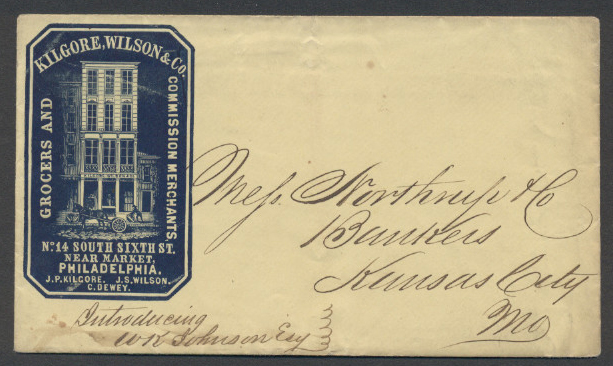 KILGORE, WILSON & CO.
GROCERS AND
COMMISSION MERCHANTS,
No. 14 SOUTH SIXTH ST.
NEAR MARKET,
PHILADELPHIA.
J.P. KILGORE. J.S. WILSON.
C. DEWEY.
Mess. Northrup & Co
Bankers
Kansas City
Mo
Introducing
W K Johnson Esq